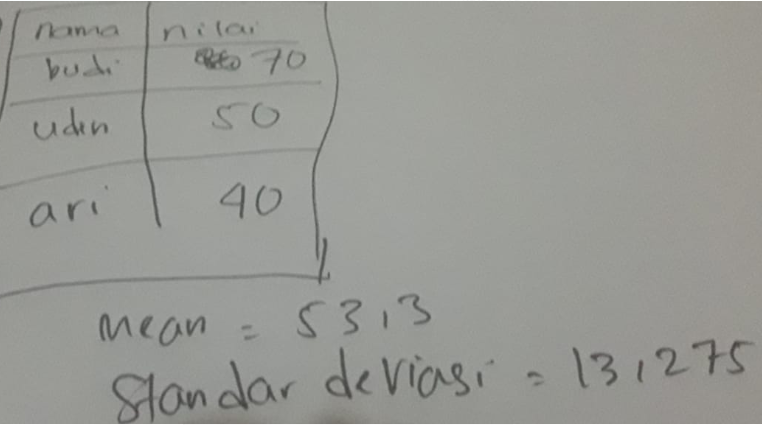 nama nilai
budi 70
uden 50
ari 40
mean = 53,3
Standar deviasi = 13,275